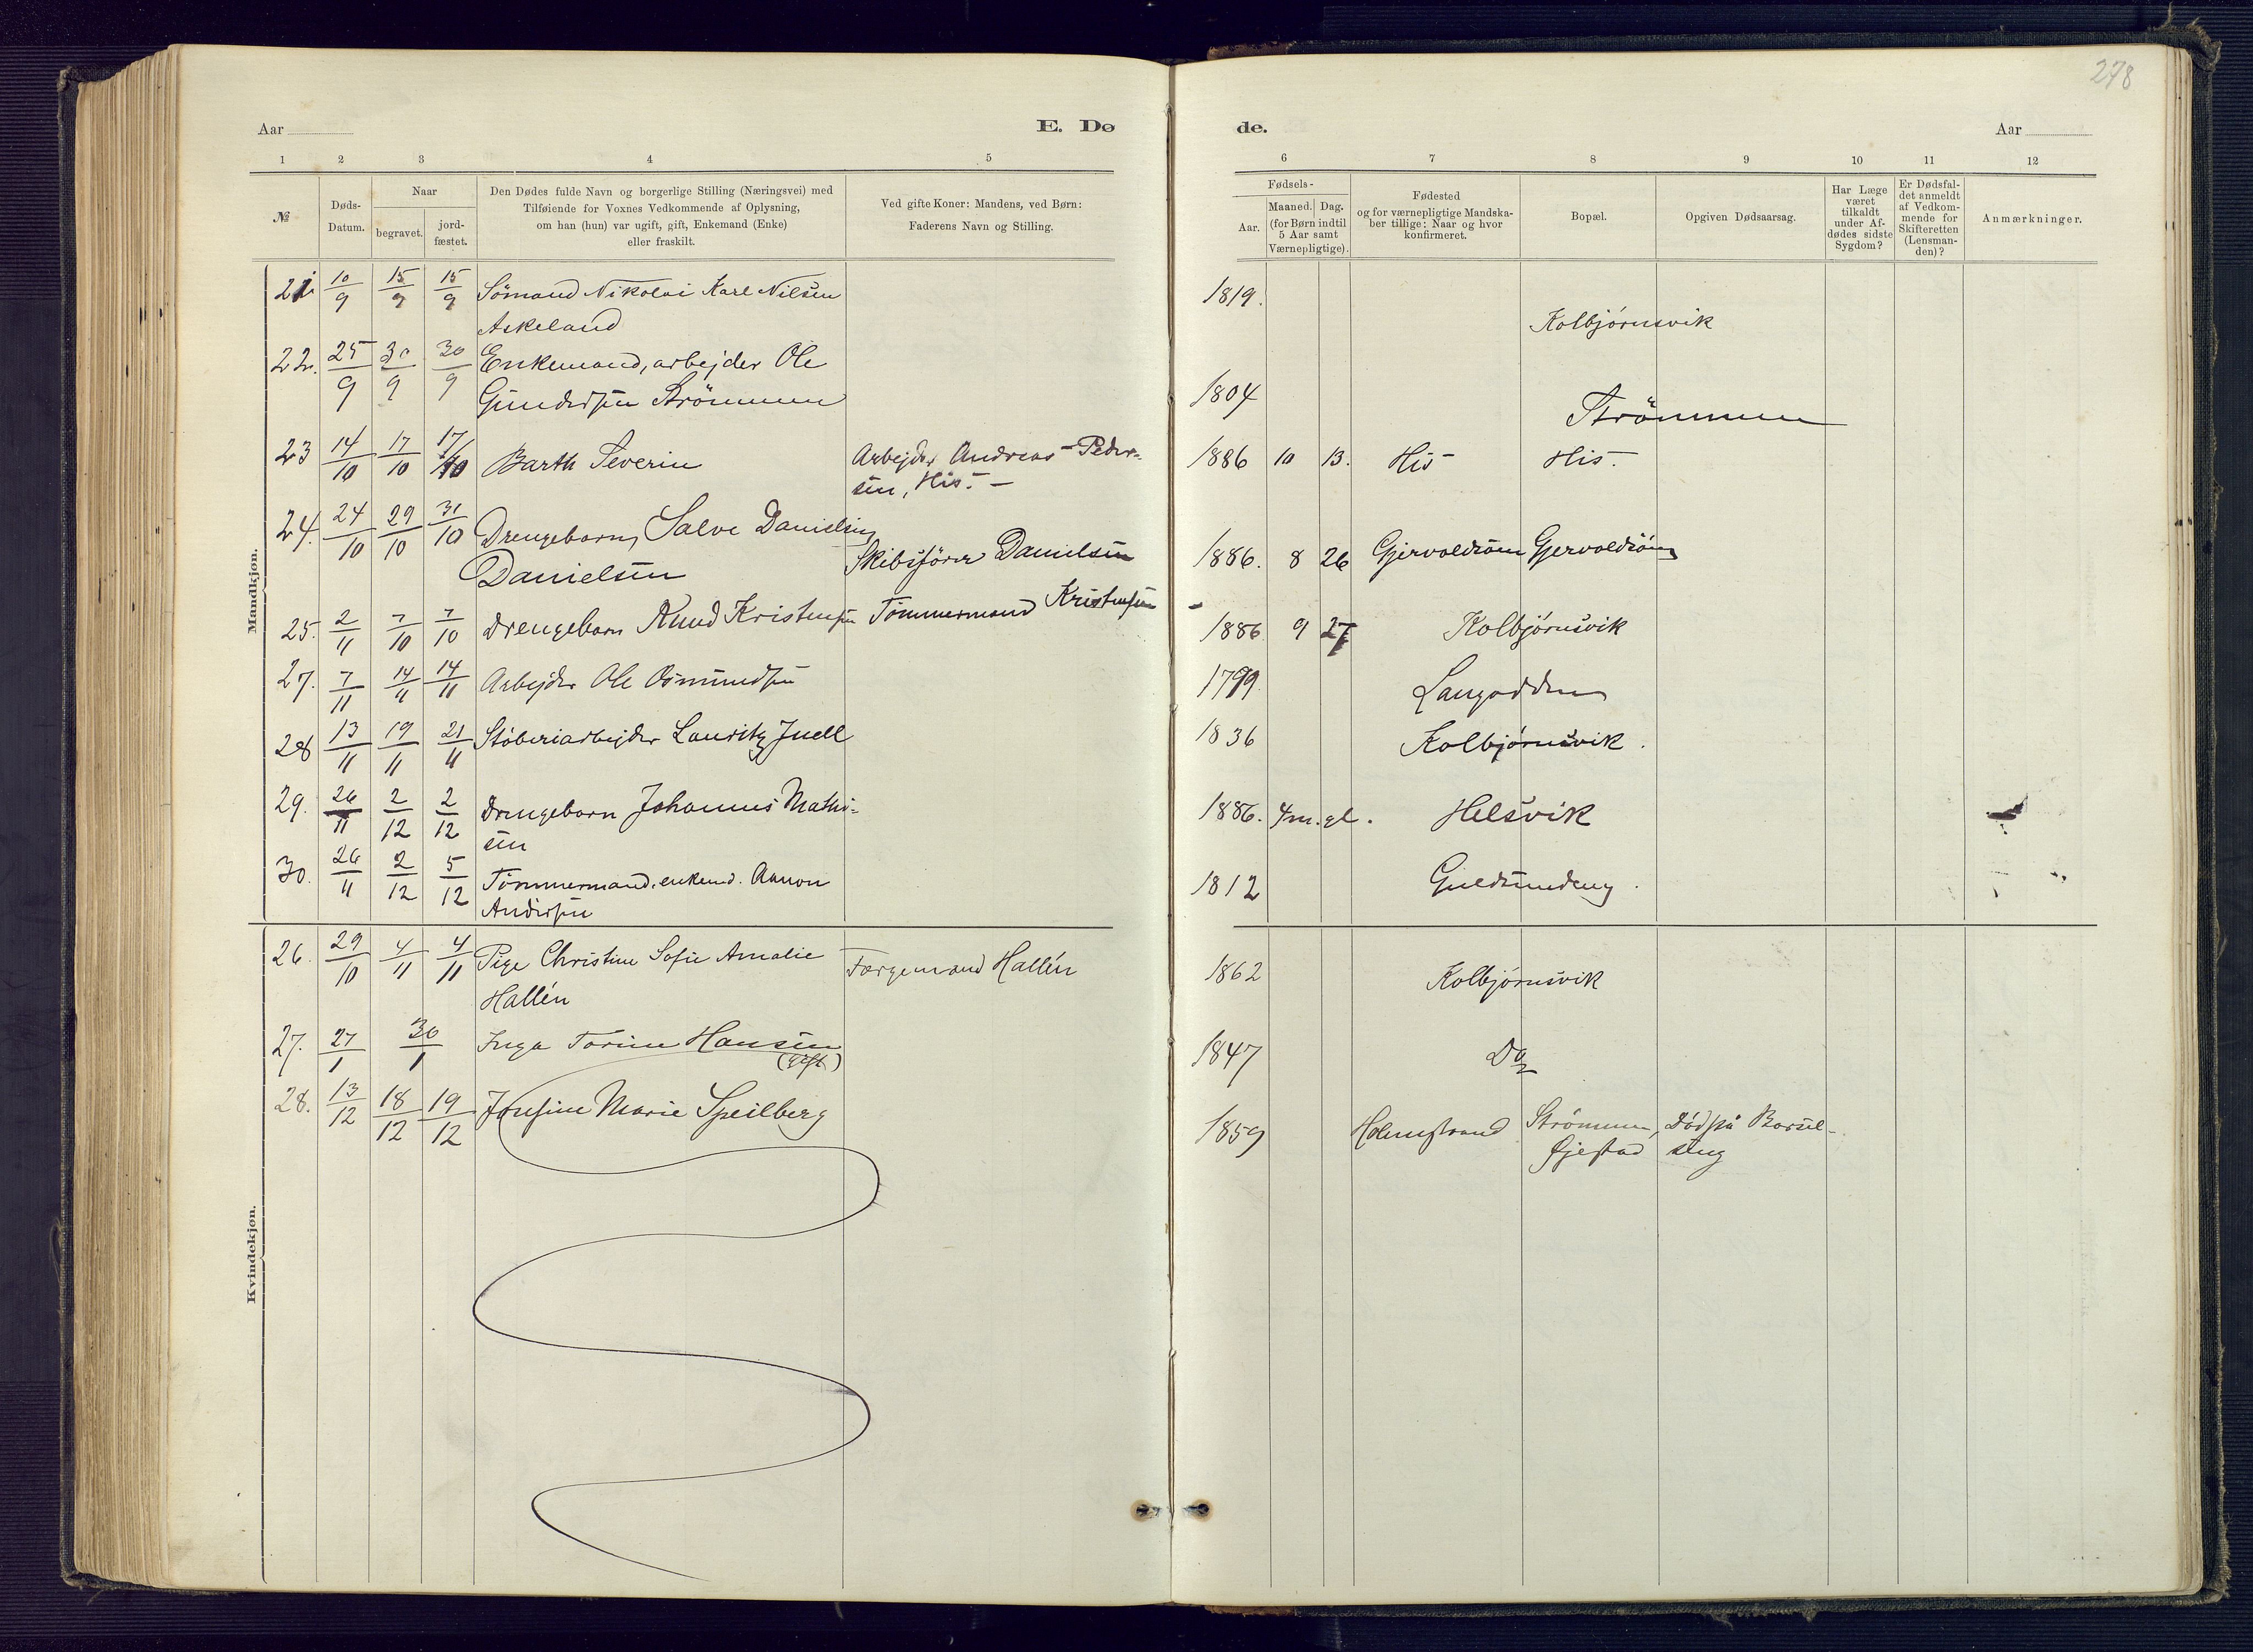 278
Aar
E. Dø
de.
Aar
1 2 3 4 5 6 7 8 9 10 11 12
№
Døds-
Datum.
Naar
begravet.
jord-
fæstet.
Den Dødes fulde Navn og borgerlige Stilling (Næringsvei) med
Tilføiende for Voxnes Vedkommende af Oplysning,
om han (hun) var ugift, gift, Enkemand (Enke)
eller fraskilt.
Ved gifte Koner: Mandens, ved Børn:
Faderens Navn og Stilling.
Fødsels-
Aar.
Maaned. Dag.
(for Børn indtil
5 Aar samt
Værnepligtige).
Fødested
og for værnepligtige Mandska-
ber tillige: Naar og hvor
konfirmeret.
Bopæl.
Opgiven Dødsaarsag.
Har Læge
været
tilkaldt
under Af-
dødes sidste
Sygdom?
Er Dødsfal-
det anmeldt
af Vedkom-
mende for
Skifteretten
(Lensman-
den)?
Anmærkninger.
Mandkjøn.
21 10/9 15/9 15/9 Sömand Nikolai Karl Nilsen 1819.
Askeland Kolbjørnsvik
22. 25/9 30/9 30/9 Enkemand, arbejder Ole 1804
Gundersen Strömmen Strömmen
23 14/10 17/10 17/10 Barth Severin Arbejder Andreas Peder- 1886 10 13. His His.
sen, His. –
24. 24/10 29/10 31/10 Drengebarn, Salve Danielsen
Danielsen Skibsförer Danielsen 1886. 8 26 Gjervoldsöen Gjervoldsöen
25. 2/11 7/10 7/10 Drengebarn Knud Kristensen Tömmermand Kristensen 1886 9 27 Kolbjørnsvik
27. 7/11 14/11 14/11 Arbejder Ole Osmundsen 1799. Langodden
28 13/11 19/11 21/11 Støberiarbejder Lauritz Juell 1836 Kolbjørnsvik.
29. 26/11 2/12 2/12 Drengebarn Johannes Mathi- 1886. 4 m. gl. Helsvik
sen
30. 26/11 2/12 5/12 Tömmermand, enkemd. Aanon 1812 Guldsmedeng.
Andersen
Kvindekjøn.
26. 29/10 4/11 4/11 Pige Christine Sofie Amalie Færgemand Hallén 1862 Kolbjørnsvik
Hallén
27. 27/1 30/1 Inga Torine Hansen 1847 Do
(gift)
28. 13/12 18/12 19/12 Josefine Marie Speilberg 1859 Holmestrand Strömmen, Död på Barsel-
Øjestad seng